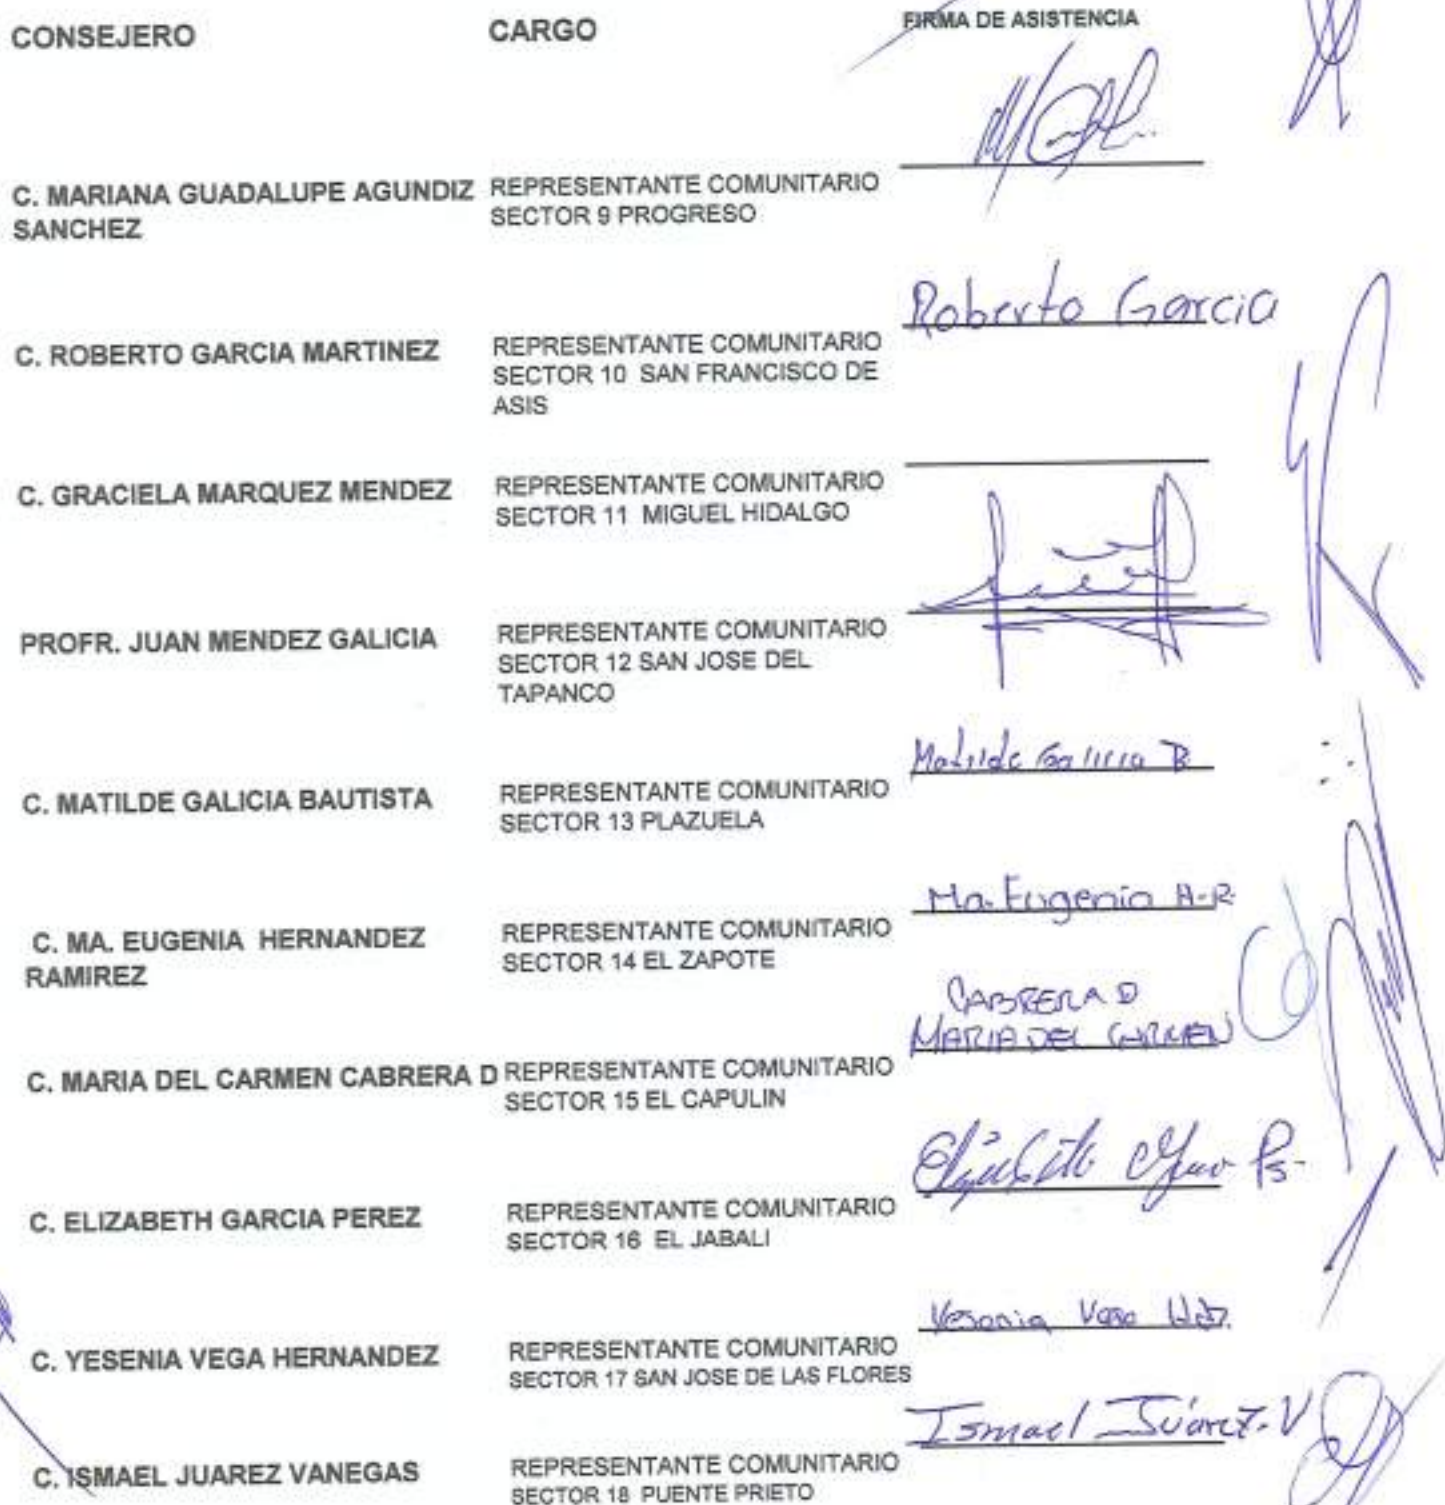 CONSEJERO CARGO FIRMA DE ASISTENCIA
C. MARIANA GUADALUPE AGUNDIZ REPRESENTANTE COMUNITARIO
SANCHEZ SECTOR 9 PROGRESO
Roberto Garcia
C. ROBERTO GARCIA MARTINEZ REPRESENTANTE COMUNITARIO
SECTOR 10 SAN FRANCISCO DE
ASIS
C. GRACIELA MARQUEZ MENDEZ REPRESENTANTE COMUNITARIO
SECTOR 11 MIGUEL HIDALGO
PROFR. JUAN MENDEZ GALICIA REPRESENTANTE COMUNITARIO
SECTOR 12 SAN JOSE DEL
TAPANCO
Matilde Galicia B
C. MATILDE GALICIA BAUTISTA REPRESENTANTE COMUNITARIO
SECTOR 13 PLAZUELA
Ma. Eugenia H-R.
C. MA. EUGENIA HERNANDEZ REPRESENTANTE COMUNITARIO
RAMIREZ SECTOR 14 EL ZAPOTE
CABRERA D
MARIA DEL CARMEN
C. MARIA DEL CARMEN CABRERA D REPRESENTANTE COMUNITARIO
SECTOR 15 EL CAPULIN
C. ELIZABETH GARCIA PEREZ REPRESENTANTE COMUNITARIO
SECTOR 16 EL JABALI
Yesenia Vega Hdz.
C. YESENIA VEGA HERNANDEZ REPRESENTANTE COMUNITARIO
SECTOR 17 SAN JOSE DE LAS FLORES
Ismael Juárez. V
C. ISMAEL JUAREZ VANEGAS REPRESENTANTE COMUNITARIO
SECTOR 18 PUENTE PRIETO